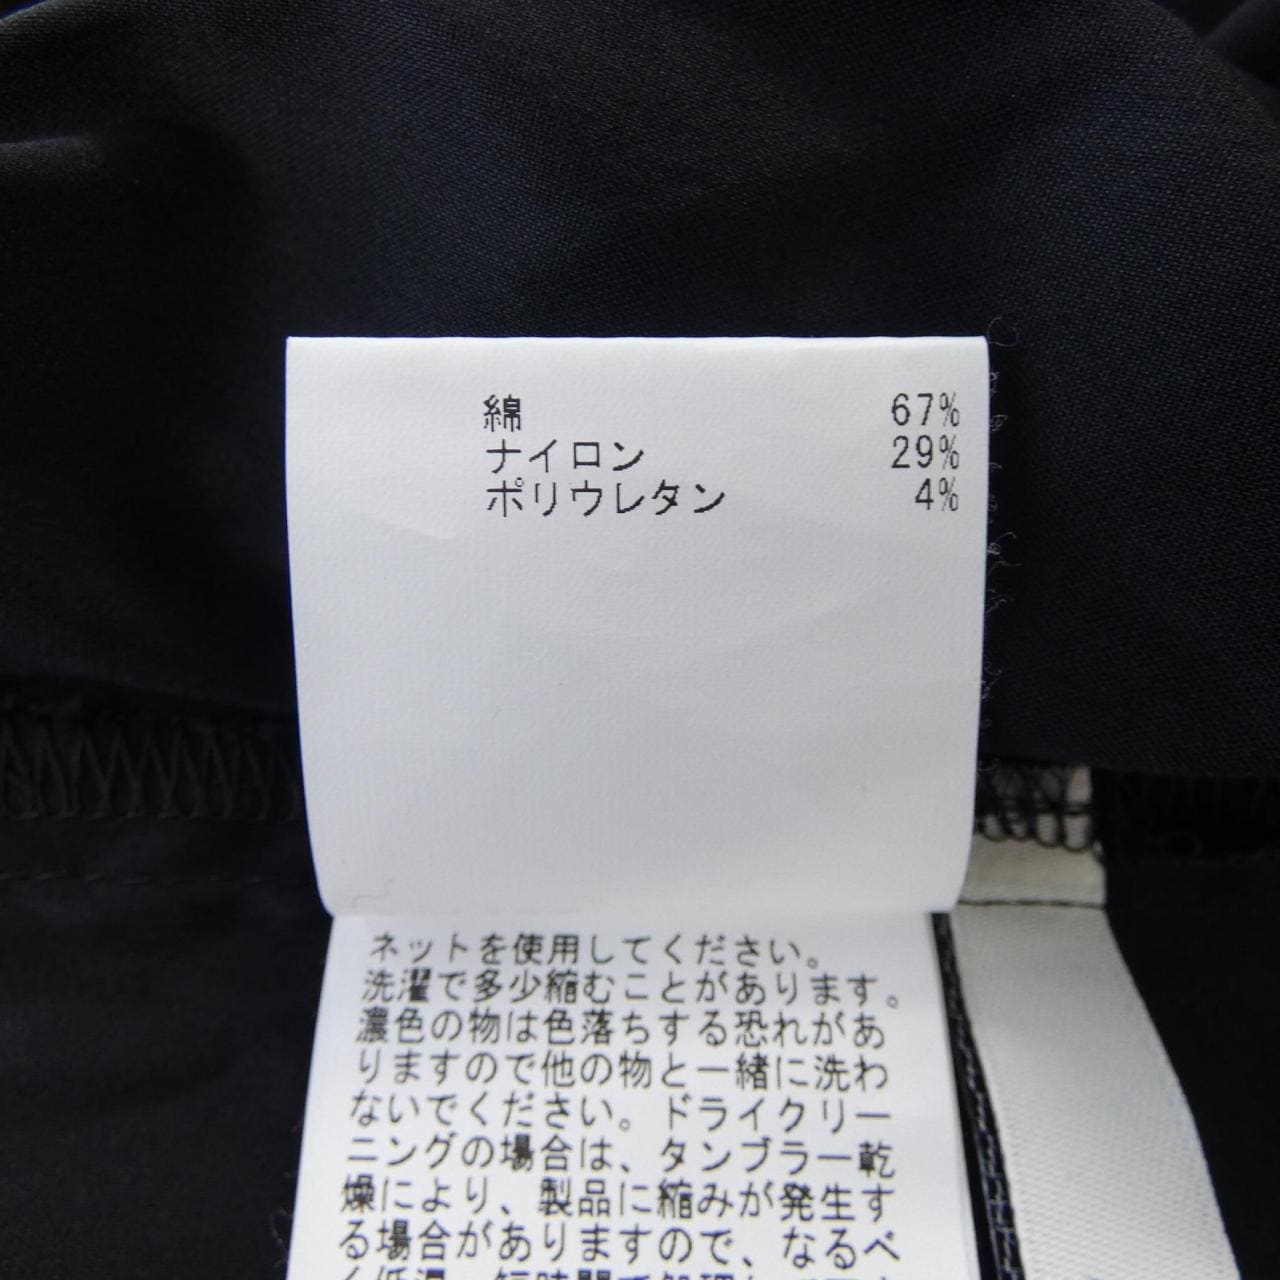 綿 67%
ナイロン 29%
ポリウレタン 4%
ネットを使用してください。
洗濯で多少縮むことがあります。
濃色の物は色落ちする恐れがあ
りますので他の物と一緒に洗わ
ないでください。ドライクリー
ニングの場合は、タンブラー乾
燥により、製品に縮みが発生す
る場合がありますので、なるべ